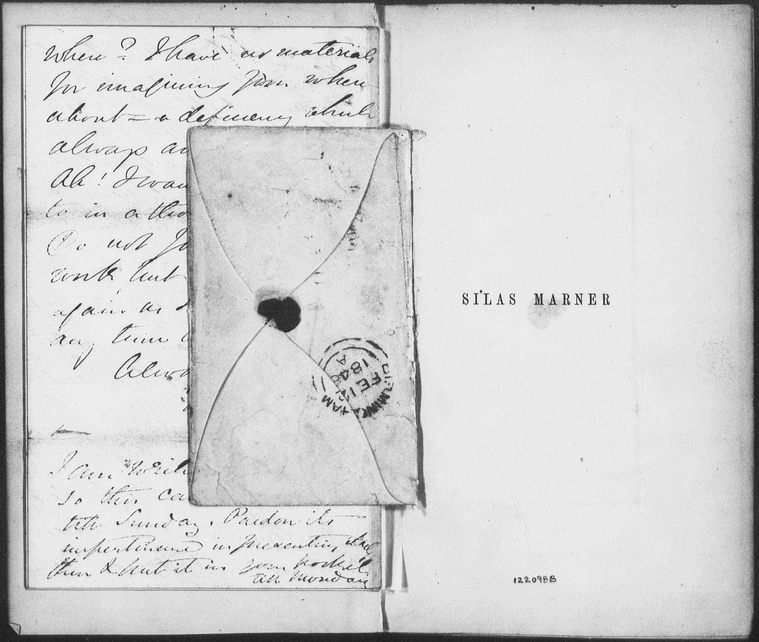 when? I have no materials
for imagining your where
about — a deficiency which
always
Ah! I
to in a
Do not
work but
again as
any time
I am
so this
till Sunday. Pardon its
impertinence in presenting itself
then & put it in your pocket
till Monday
BIRMINGHAM
FE 12
184
A
SILAS MARNER
122098B